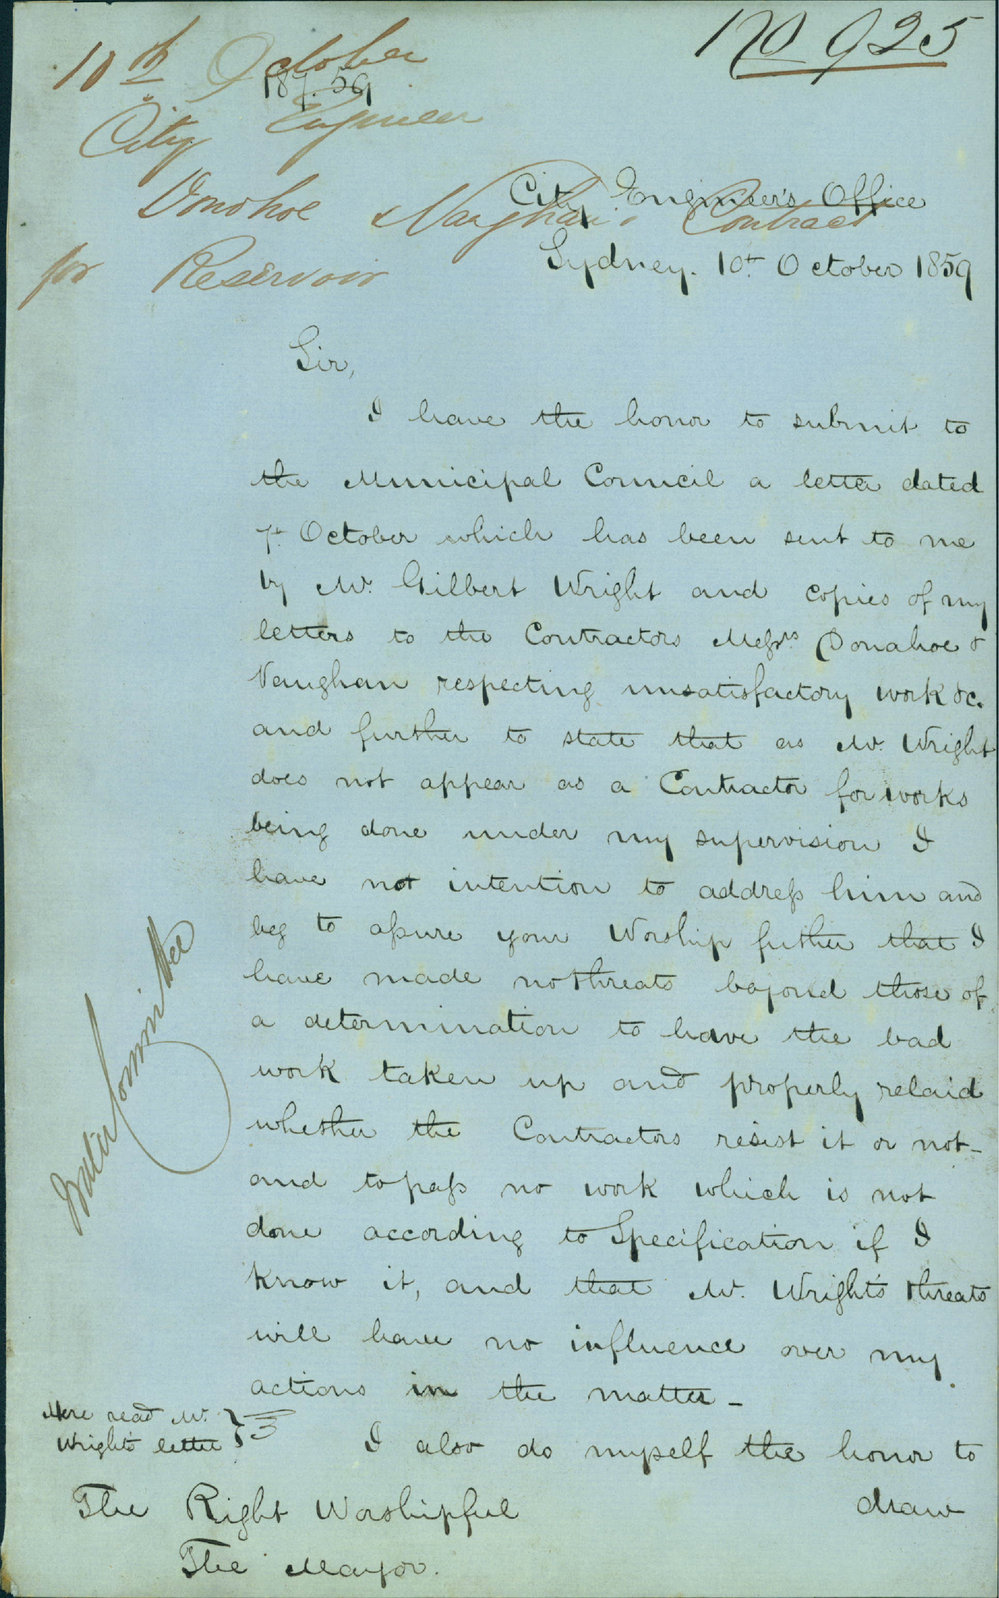 No 925
10th October
1859
City Engineer
Donohoe & Vaughan's Contract
for Reservoir
City Engineer's Office
Sydney. 10th October 1859
Sir,
I have the honor to submit to
the Municipal Council a letter dated
7th October which has been sent to me
by Mr. Gilbert Wright and copies of my
letters to the Contractors Messrs. Donahoe &
Vaughan respecting unsatisfactory work &c.
and further to state that as Mr. Wright
does not appear as a Contractor for works
being done under my supervision I
have not intention to address him and
beg to assure your Worship further that I
have made no threats beyond those of
a determination to have the bad
work taken up and properly relaid
whether the Contractors resist it or not_
and to pass no work which is not
done according to Specification if I
know it, and that Mr. Wright's threats
will have no influence over my
actions in the matter_
Here read Mr.
Wright's letter
I also do myself the honor to
draw
The Right Worshipful
The Mayor.
Water Committee